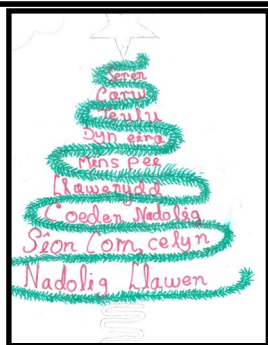 Seren
Carw
Teulu
Dyn eira
Mins pee
Llawenydd
Coeden Nadolig
Siôn Corn, celyn
Nadolig Llawen